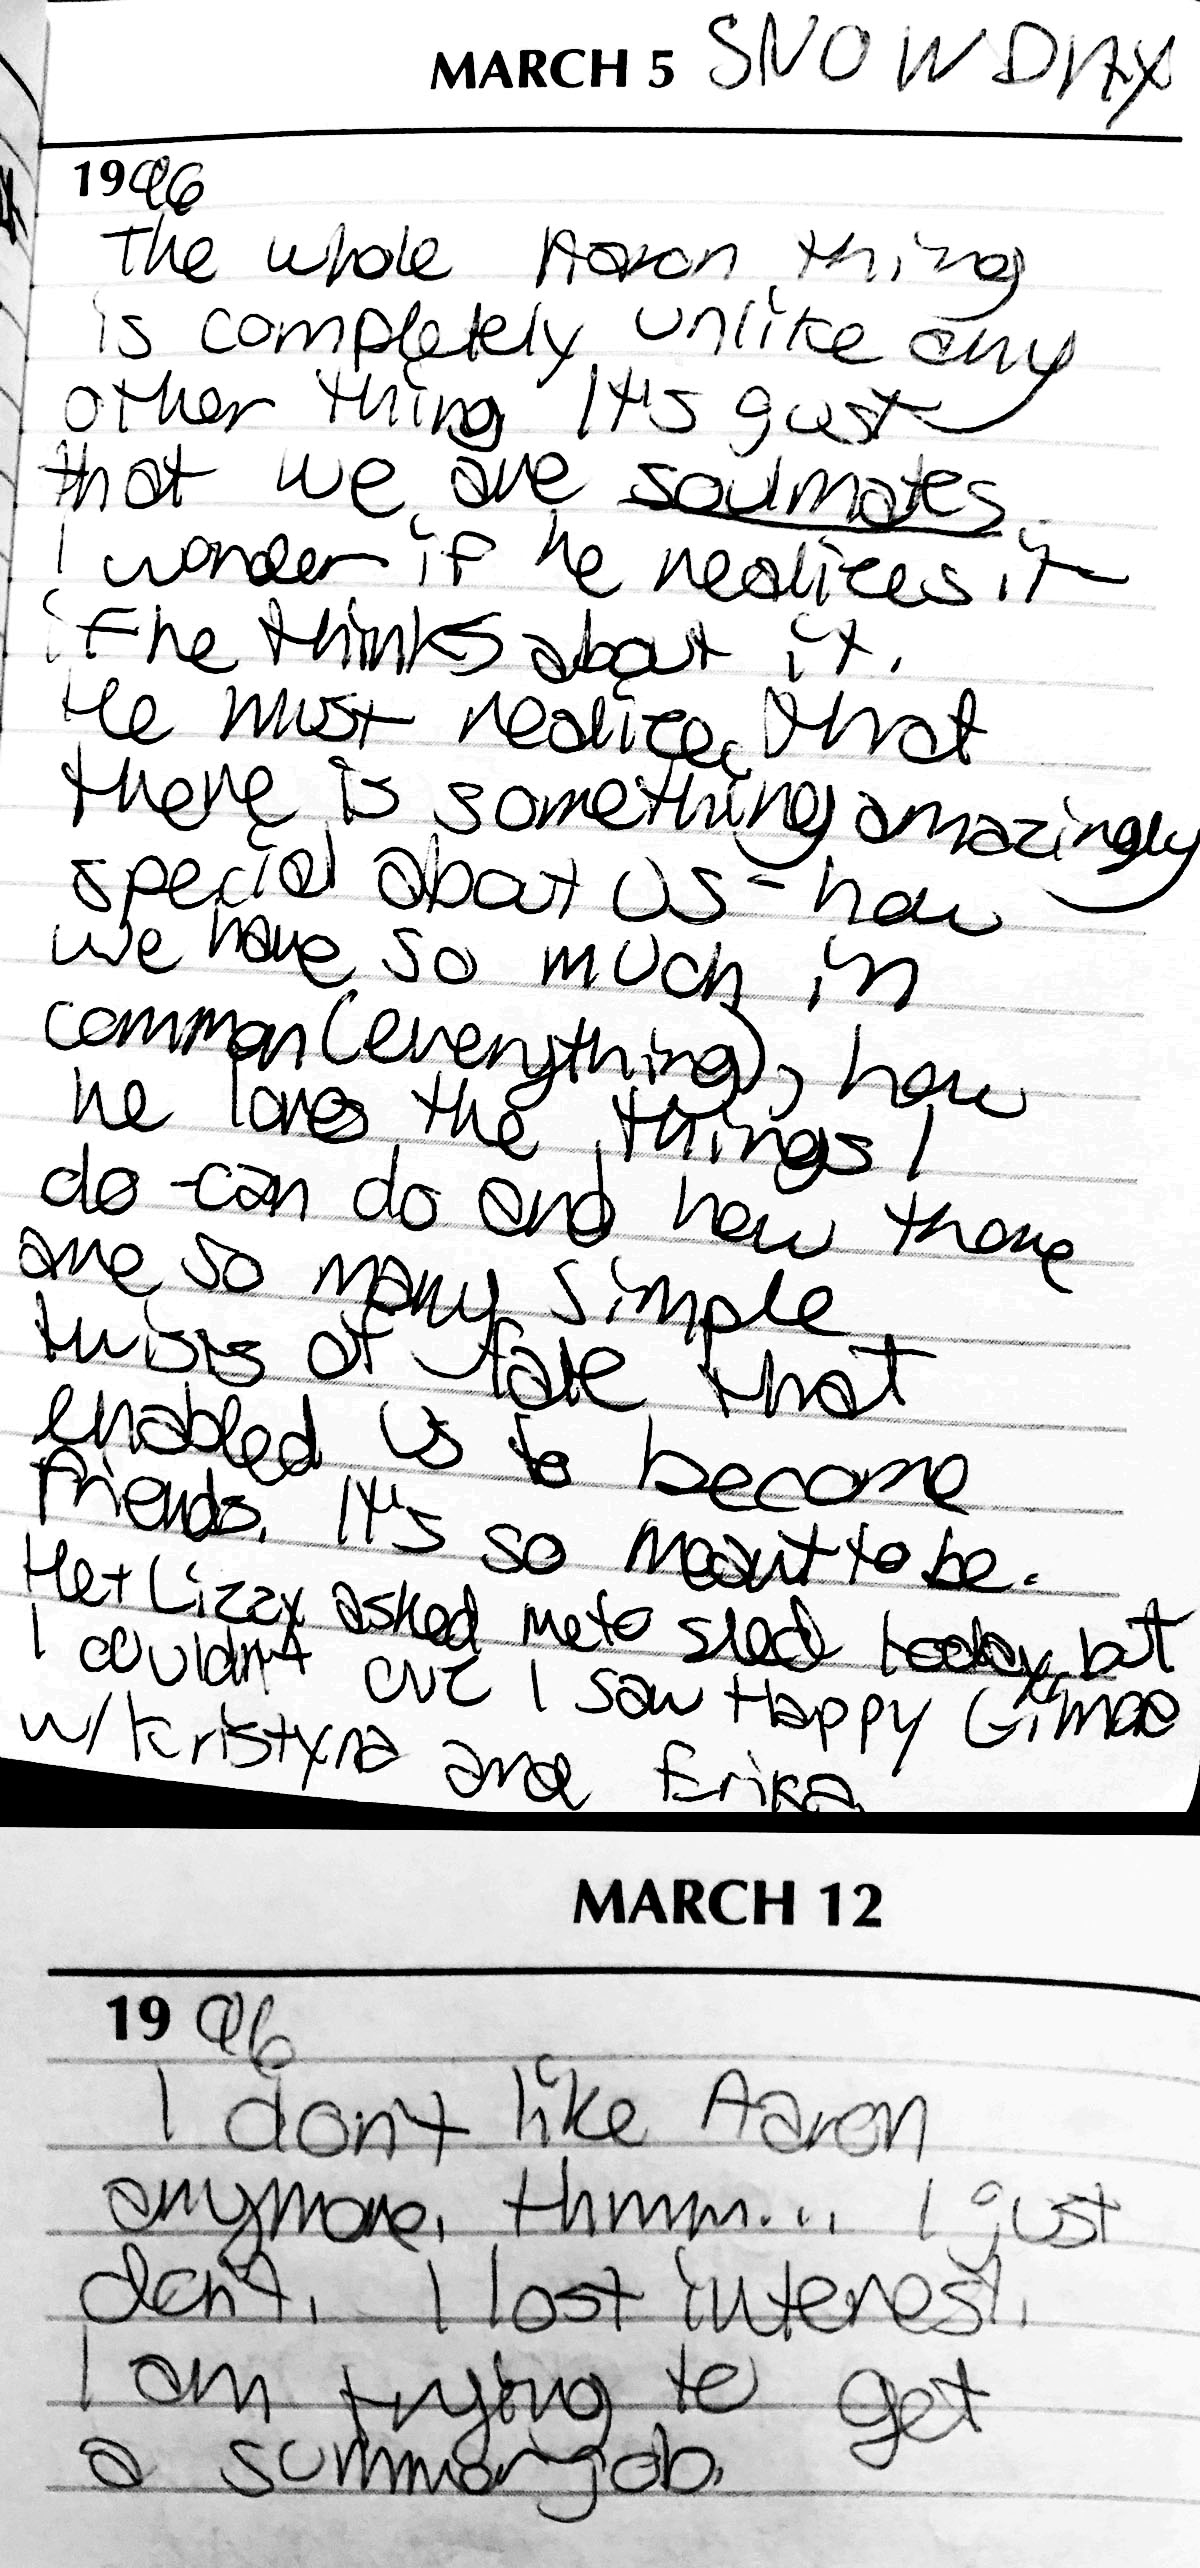 MARCH 5 SNOW DAY
1996
The whole Aaron thing
is completely unlike any
other thing It's just
that we are soulmates.
I wonder if he realizes it
if he thinks about it.
He must realize that
there is something amazingly
special about us - how
we have so much in
common (everything), how
he loves the things I
do - can do and how there
are so many simple
twists of fate that
enabled us to become
friends. It's so meant to be.
He + Lizzy asked me to sled today, but
I couldn't cuz I saw Happy Gilmore
w/ Kristyna and Erika.
MARCH 12
1996
I don't like Aaron
anymore. Hmmm... I just
don't. I lost interest.
I am trying to get
a summer job.